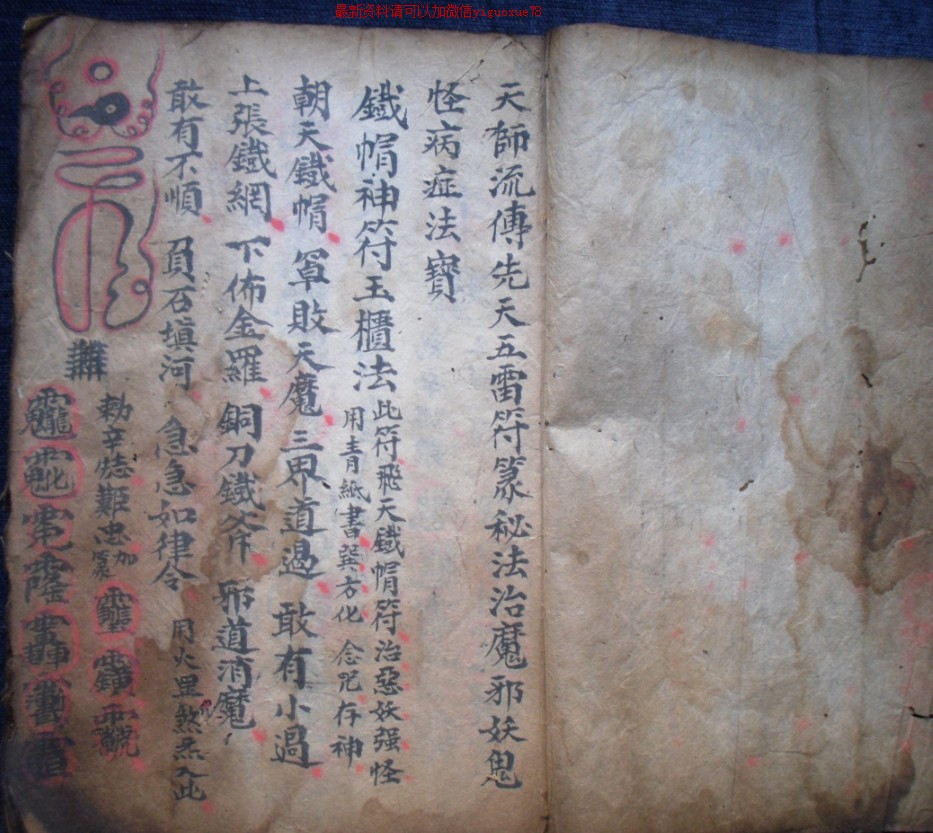 最新资料请可以加微信yiguoxue78
天師流傳先天五雷符篆秘法治魔邪妖鬼
怪病症法寶
鐵帽神符玉櫃法
此符飛天鐵帽符治惡妖强怪
用青紙書巽方化 念咒存神
朝天鐵帽 罩敗天魔 三界道過 敢有小過
上張鐵網 下佈金羅 銅刀鐵斧 邪道消魔
敢有不順 負石填河 急急如律令
用火罡煞炁入此
勅辛 難忠加篆